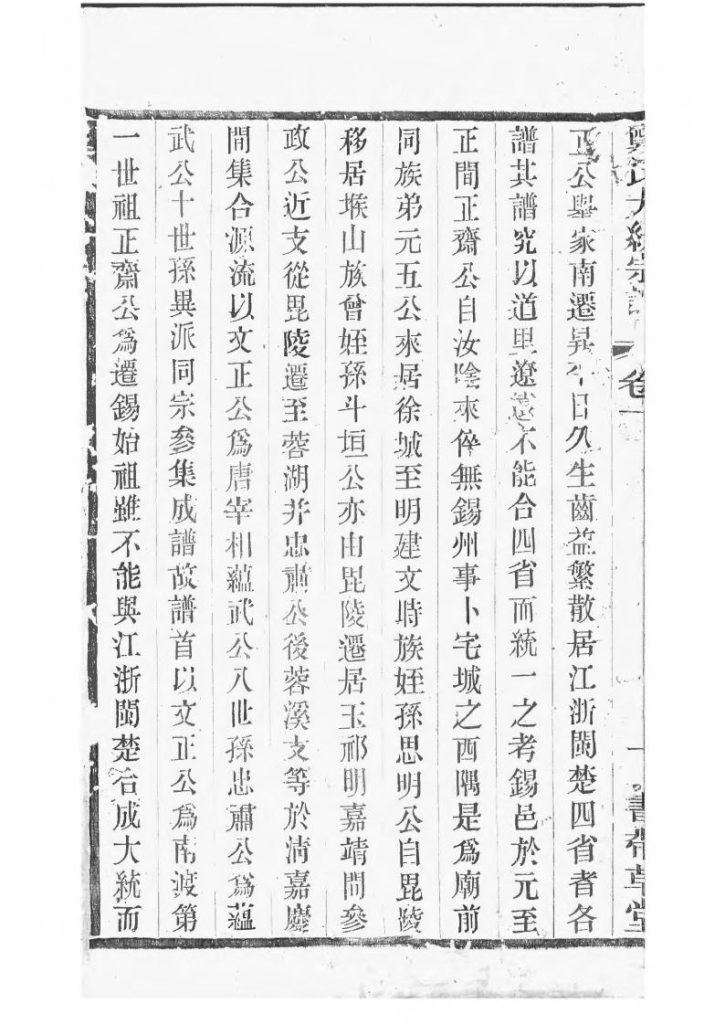 鄭氏大統宗譜 卷一 一 書帶草堂
正公舉家南遷昇平日久生齒益繁散居江浙閩楚四省者各
譜其譜究以道里遼遠不能合四省而統一之考錫邑於元至
正間正齋公自汝陰來倅無錫州事卜宅城之西隅是爲廟前
同族弟元五公來居徐城至明建文時族姪孫思明公自毘陵
移居堠山族曾姪孫斗垣公亦由毘陵遷居玉祁明嘉靖間參
政公近支從毘陵遷至蓉湖并忠肅公後蓉溪支等於淸嘉慶
間集合源流以文正公爲唐宰相蘊武公八世孫忠肅公爲蘊
武公十世孫異派同宗參集成譜故譜首以文正公爲南渡第
一世祖正齋公爲遷錫始祖雖不能與江浙閩楚合成大統而